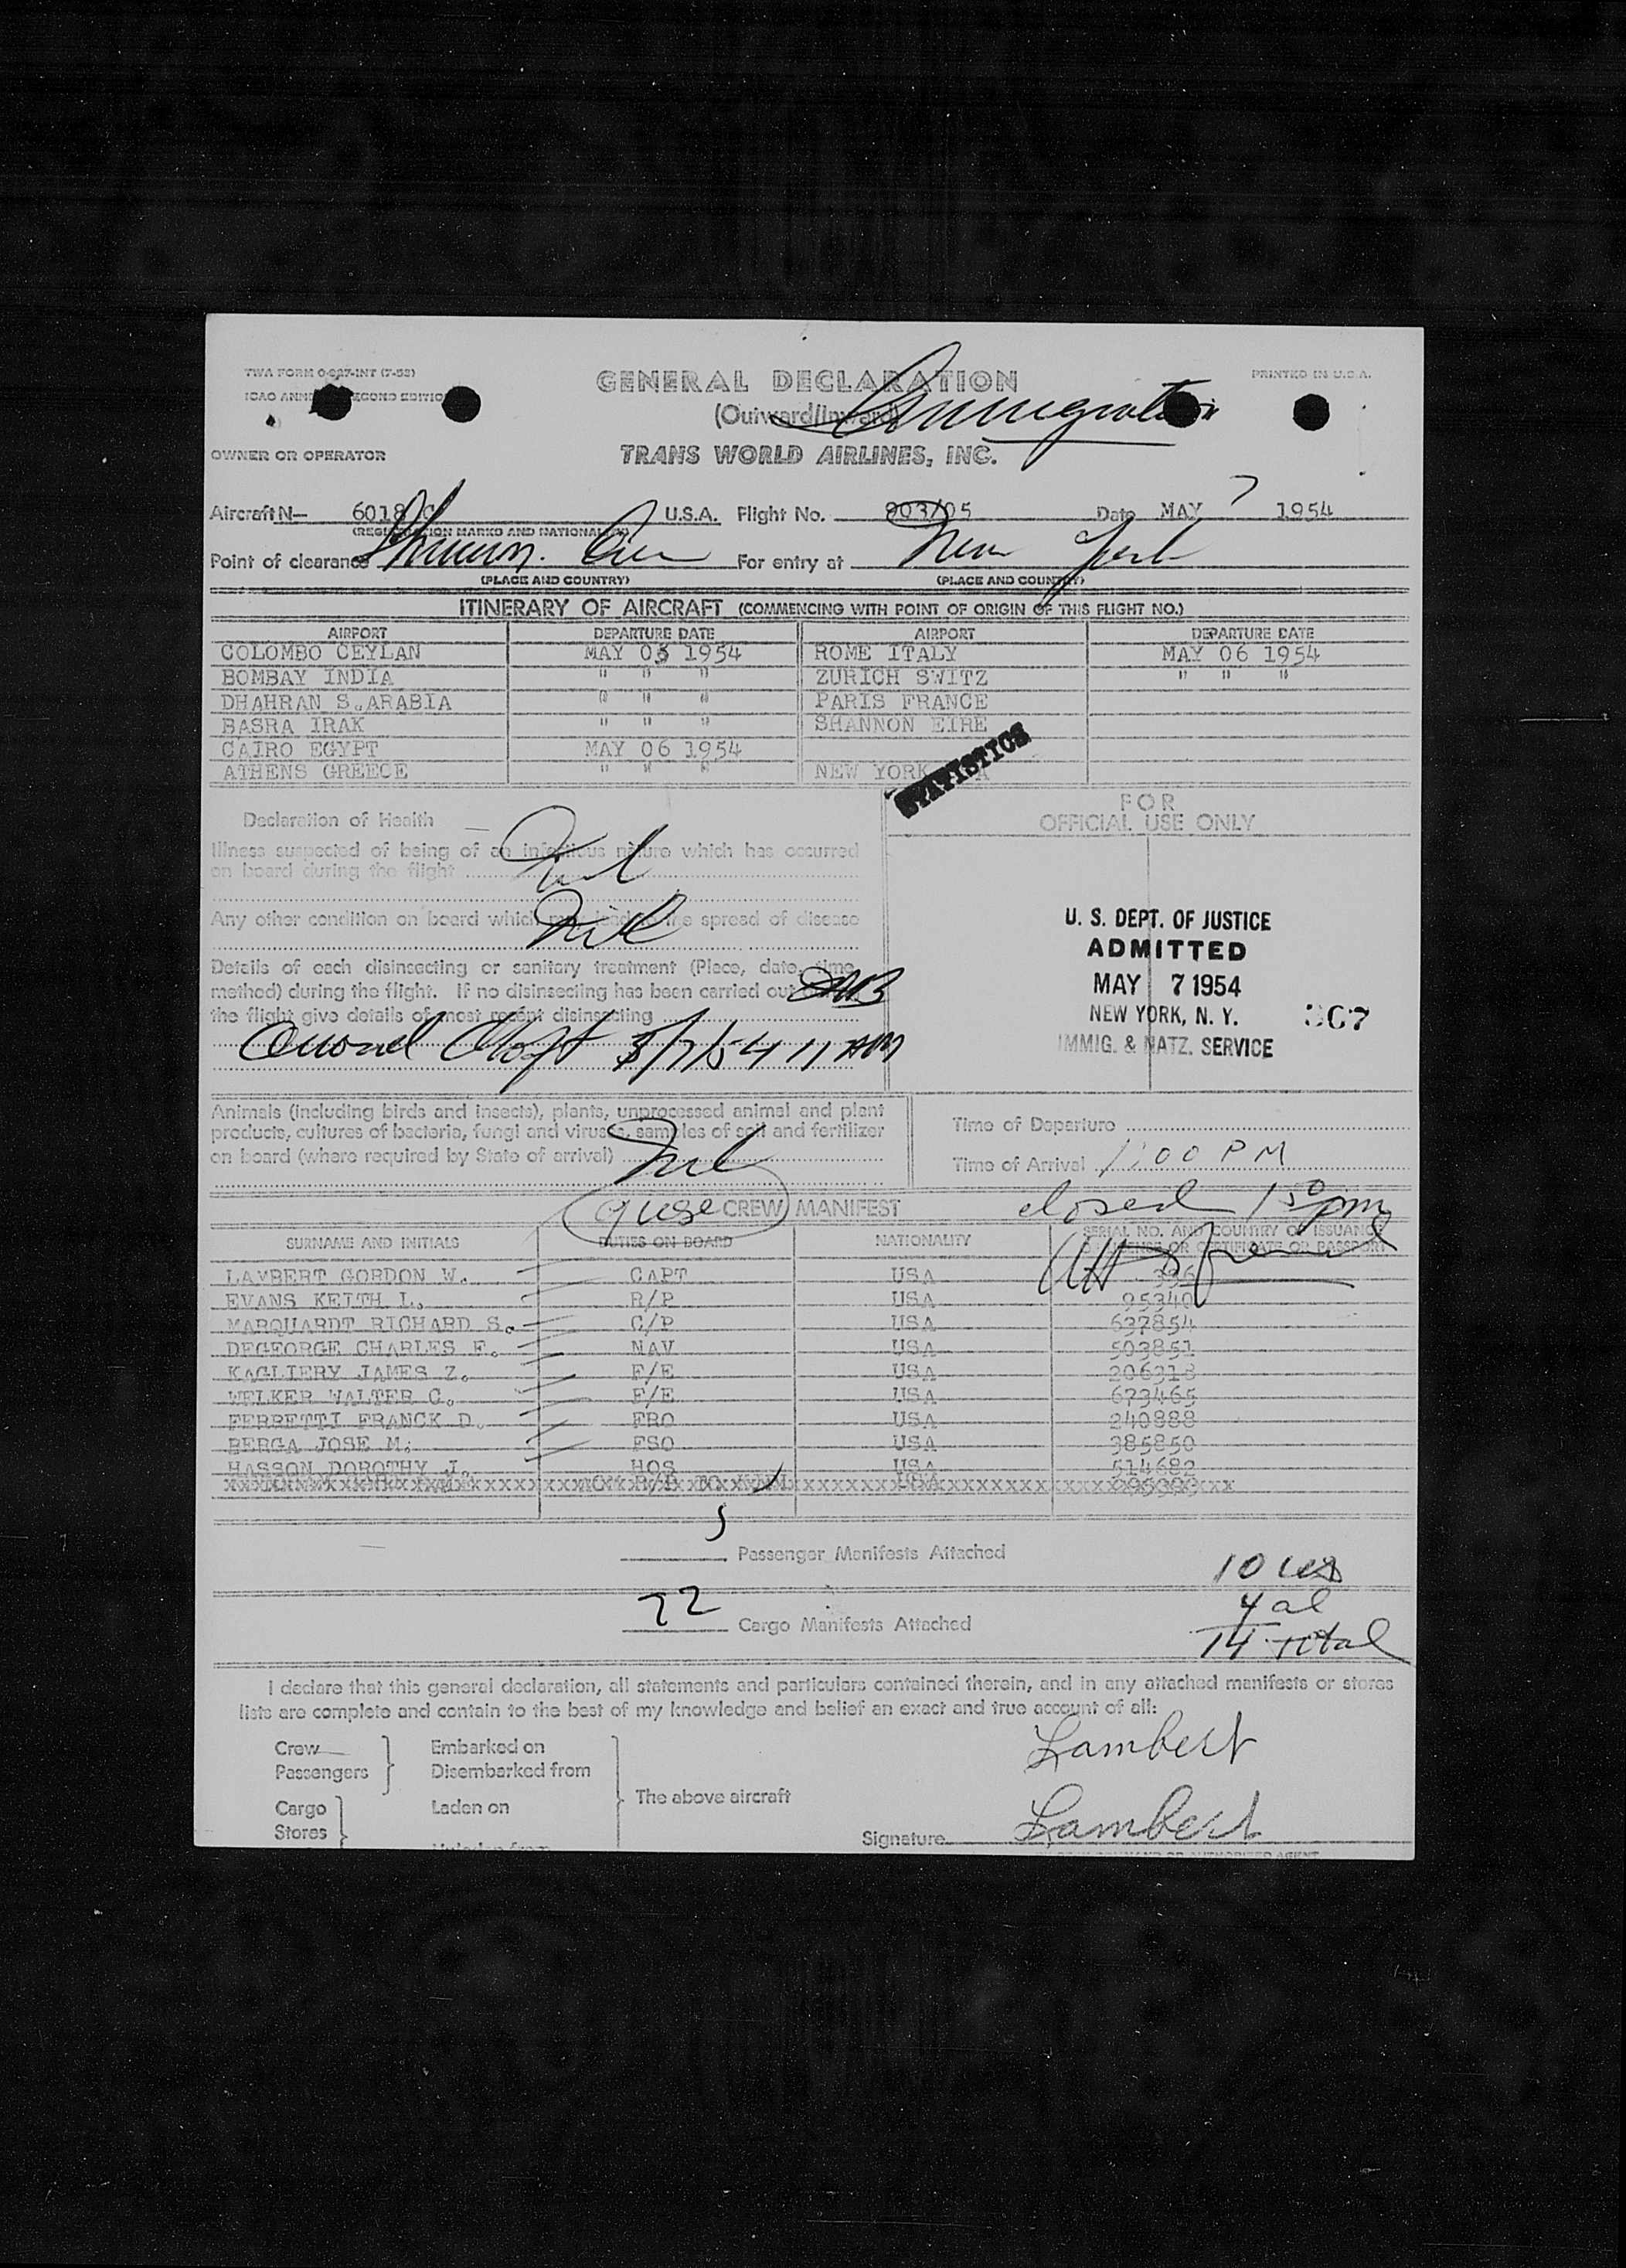 TWA FORM 0-927-INT (7-53)
GENERAL DECLARATION
PRINTED IN U.S.A.
ICAO ECOND EDITION
(Outward/Inward)
Immigration
OWNER OR OPERATOR
TRANS WORLD AIRLINES, INC.
Aircraft N— 6018 C U.S.A. Flight No. 903/05 Date MAY 7 1954
(REGISTRATION MARKS AND NATIONALITY)
Point of clearance Shannon. Eire For entry at New York
(PLACE AND COUNTRY) (PLACE AND COUNTRY)
ITINERARY OF AIRCRAFT (COMMENCING WITH POINT OF ORIGIN OF THIS FLIGHT NO.)
AIRPORT DEPARTURE DATE AIRPORT DEPARTURE DATE
COLOMBO CEYLAN MAY 05 1954 ROME ITALY MAY 06 1954
BOMBAY INDIA " " " ZURICH SWITZ " " "
DHAHRAN S.ARABIA " " " PARIS FRANCE
BASRA IRAK " " " SHANNON EIRE
CAIRO EGYPT MAY 06 1954
ATHENS GREECE " " " NEW YORK
STATISTICS
Declaration of Health
FOR
OFFICIAL USE ONLY
Illness suspected of being of an infectious nature which has occurred
on board during the flight Nil
Any other condition on board which may lead to the spread of disease
Nil
Details of each disinsecting or sanitary treatment (Place, date, time,
method) during the flight. If no disinsecting has been carried out
the flight give details of most recent disinsecting
5/7/54 11 AM
U. S. DEPT. OF JUSTICE
ADMITTED
MAY 7 1954
NEW YORK, N. Y. 307
IMMIG. & NATZ. SERVICE
Animals (including birds and insects), plants, unprocessed animal and plant
products, cultures of bacteria, fungi and viruses, samples of soil and fertilizer
on board (where required by State of arrival) Nil
Time of Departure
Time of Arrival 1:00 PM
CREW MANIFEST
closed 150 pm
SURNAME AND INITIALS DUTIES ON BOARD NATIONALITY SERIAL NO. AND COUNTRY OF ISSUANCE
OF LICENSE OR CERTIFICATE OR PASSPORT
LAMBERT GORDON W. CAPT USA
EVANS KEITH L. R/P USA 95340
MARQUARDT RICHARD S. C/P USA 637854
DEGEORGE CHARLES F. NAV USA 503851
KAGLIERY JAMES Z. F/E USA 206318
WELKER WALTER C. F/E USA 673465
FERRETTI FRANCK D. FRO USA 240888
BERGA JOSE M. FSO USA 385850
HASSON DOROTHY J. HOS USA 514682
5
Passenger Manifests Attached
22
Cargo Manifests Attached
10
4 al
14 total
I declare that this general declaration, all statements and particulars contained therein, and in any attached manifests or stores
lists are complete and contain to the best of my knowledge and belief an exact and true account of all:
Crew
Passengers
Embarked on
Disembarked from
Cargo
Stores
Laden on
The above aircraft
Lambert
Signature Lambert